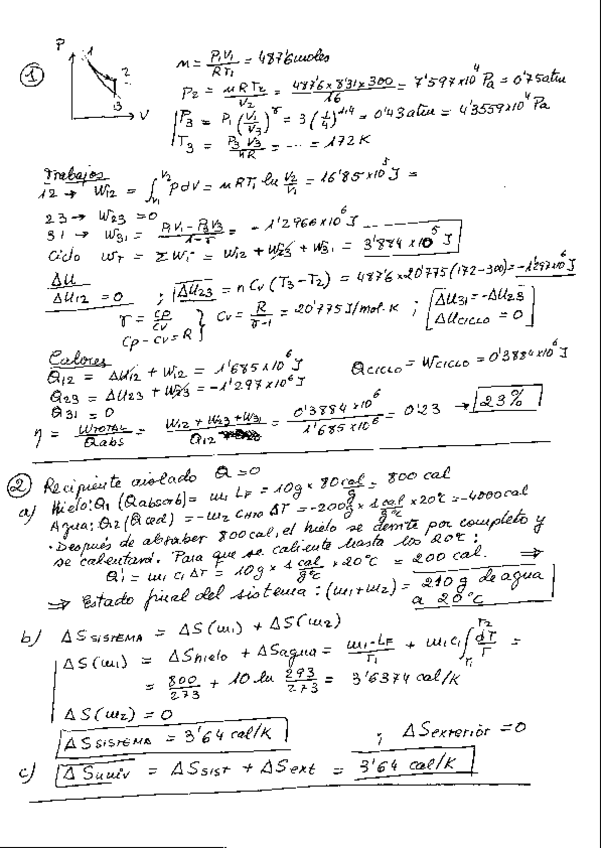 ① P 1 2 3 V
n = P₁V₁/RT₁ = 487'6 moles
P₂ = nRT₂/V₂ = 487'6 x 8'31 x 300/16 = 7'597x10⁴ Pa = 0'75 atm
P₃ = P₁(V₁/V₃)^γ = 3(1/4)^1,4 = 0'43 atm = 4'3559x10⁴ Pa
T₃ = P₃V₃/nR = ... = 172 K
Trabajos
12 → W₁₂ = ∫_V₁^V₂ p dV = nRT₁ ln V₂/V₁ = 16'85x10⁵ J =
23 → W₂₃ = 0
31 → W₃₁ = P₁V₁ - P₃V₃/1-γ = -1'2966x10⁶ J
Ciclo W_T = ΣWᵢ = W₁₂ + W₂₃ + W₃₁ = 3'884x10⁵ J
ΔU
ΔU₁₂ = 0 ; ΔU₂₃ = n Cv (T₃-T₂) = 487'6 x 20'775 (172-300) = -1'297x10⁶ J
γ = Cp/Cv
Cp - Cv = R } Cv = R/γ-1 = 20'775 J/mol·K ; [ΔU₃₁ = -ΔU₂₃
ΔU CICLO = 0]
Calores
Q₁₂ = ΔU₁₂ + W₁₂ = 1'685x10⁶ J Q CICLO = W CICLO = 0'3884x10⁶ J
Q₂₃ = ΔU₂₃ + W₂₃ = -1'297x10⁶ J
Q₃₁ = 0
η = W TOTAL/Q abs = W₁₂ + W₂₃ + W₃₁/Q₁₂ = 0'3884x10⁶/1'685x10⁶ = 0'23 → 23%
② Recipiente aislado Q = 0
a) Hielo: Q₁ (Q absorb) = m₁ L_F = 10g x 80 cal/g = 800 cal
Agua: Q₂ (Q ced) = -m₂ C_H₂O ΔT = -200g x 1 cal/g°C x 20°C = -4000 cal
· Después de absorber 800 cal, el hielo se derrite por completo y
se calentará. Para que se caliente hasta los 20°C:
Q'₁ = m₁ c₁ ΔT = 10g x 1 cal/g°C x 20°C = 200 cal. ⇒
⇒ Estado final del sistema: (m₁+m₂) = 210 g de agua
a 20°C
b) ΔS SISTEMA = ΔS(m₁) + ΔS(m₂)
ΔS(m₁) = ΔS hielo + ΔS agua = m₁·L_F/T₁ + m₁c₁ ∫_T₁^T₂ dT/T =
= 800/273 + 10 ln 293/273 = 3'6374 cal/K
ΔS(m₂) = 0
ΔS SISTEMA = 3'64 cal/K ; ΔS exterior = 0
c) ΔS univ = ΔS sist + ΔS ext = 3'64 cal/K